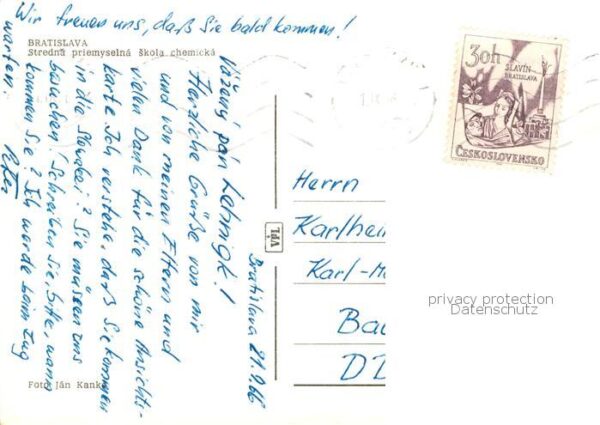 Wir freuen uns, daß Sie bald kommen!
BRATISLAVA
Stredná priemyselná škola chemická
Bratislava 21.9.66
Vážený pán Lehnigk!
Herzliche Grüße von mir
und von meinen Eltern und
vielen Dank für die schöne Ansichts-
karte. Ich verstehe, daß Sie kommen
in die Slowakei? Sie müssen uns
besuchen! Schreiben Sie, bitte, wann
kommen Sie? Ich werde beim Zug
warten.
Peter
Foto Ján Kanka
VPL
30h
SLAVÍN
BRATISLAVA
ČESKOSLOVENSKO
Herrn
Karlhei
Karl-Ma
Bau
DD
privacy protection
Datenschutz